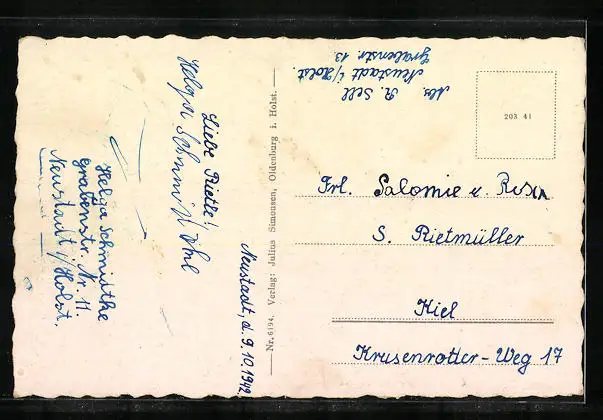 Abs. R. Sell
Neustadt i/Holst.
Grabenstr. 13.
203 41
Frl. Salomie u. Rosa
S. Rietmüller
Kiel
Krusenrotter-Weg 17
Nr. 6194. Verlag: Julius Simonsen, Oldenburg i. Holst.
Neustadt, d. 9.10.1942
Liebe Rietle!
Helga Schmidt
Helga Schmidthe
Grabenstr. Nr. 11.
Neustadt i/Holst.